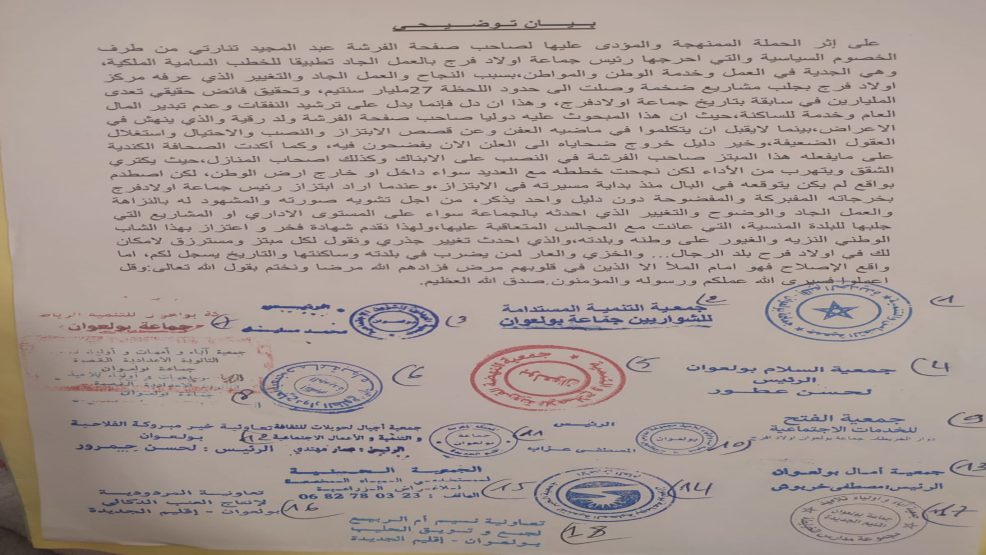 بيـان تـوضـيحـي
على إثر الحملة الممنهجة والمؤدى عليها لصاحب صفحة الفرشة عبد المجيد تنارتي من طرف
الخصوم السياسية والتي احرجها رئيس جماعة اولاد فرج بالعمل الجاد تطبيقا للخطب السامية الملكية،
وهي الجدية في العمل وخدمة الوطن والمواطن،بسبب النجاح والعمل الجاد والتغيير الذي عرفه مركز
اولاد فرج بجلب مشاريع ضخمة وصلت الى حدود اللحظة 27مليار سنتيم، وتحقيق فائض حقيقي تعدى
المليارين في سابقة بتاريخ جماعة اولادفرج، وهذا ان دل فإنما يدل على ترشيد النفقات وعدم تبدير المال
العام وخدمة للساكنة،حيث ان هذا المبحوث عليه دوليا صاحب صفحة الفرشة ولد رقية والذي ينهش في
الاعراض،بينما لايقبل ان يتكلموا في ماضيه العفن وعن قصص الابتزاز والنصب والاحتيال واستغلال
العقول الضعيفة،وخير دليل خروج ضحاياه الى العلن الان يفضحون فيه، وكما أكدت الصحافة الكندية
على مايفعله هذا المبتز صاحب الفرشة في النصب على الابناك وكذلك اصحاب المنازل،حيث يكتري
الشقق ويتهرب من الأداء لكن نجحت خططه مع العديد سواء داخل او خارج ارض الوطن، لكن اصطدم
بواقع لم يكن يتوقعه في البال منذ بداية مسيرته في الابتزاز،وعندما اراد ابتزاز رئيس جماعة اولادفرج
بخرجاته المفبركة والمفضوحة دون دليل واحد يذكر، من اجل تشويه صورته والمشهود له بالنزاهة
والعمل الجاد والوضوح والتغيير الذي احدثه بالجماعة سواء على المستوى الاداري او المشاريع التي
جلبها للبلدة المنسية، التي عانت مع المجالس المتعاقبة عليها،ولهذا نقدم شهادة فخر و اعتزاز بهذا الشاب
الوطني النزيه والغيور على وطنه وبلدته،والذي احدث تغيير جذري ونقول لكل مبتز ومسترزق لامكان
لك في اولاد فرح بلد الرجال... والخزي والعار لمن يضرب في بلدته وساكنتها والتاريخ يسجل لكم، اما
واقع الإصلاح فهو امام الملأ الا الذين في قلوبهم مرض فزادهم الله مرضا ونختم بقول الله تعالى:وقل
اعملوا فسيرى الله عملكم ورسوله والمؤمنون.صدق الله العظيم.
1
2
جمعية التنمية المستدامة
للشواريين جماعة بولعوان
3
بولعوان
جماعة بولعوان
4
جمعية السلام بولعوان
الرئيس
لحسن عطور
5
بولعوان
6
جمعية آباء و أمهات و أولياء
الثانوية الاعدادية القصبة
جماعة بولعوان
8
9
جمعية الفتح
للخدمات الاجتماعية
10
بولعوان
الرئيس
المصطفى عزاب
11
جماعة
بولعوان
جمعية أجيال لحويلات للثقافة
و التنمية و الأعمال الاجتماعية
12
تعاونية خير مبروكة الفلاحية
بولعوان
الرئيس : لحسن جيمرور
13
جمعية آمال بولعوان
الرئيس:مصطفى خربوش
14
15
الجمعية الحسنية
الهاتف : 06 82 78 03 23
16
تعاونية المردوهية
لإنتاج العنب الدكالي
بولعوان - إقليم الجديدة
17
جماعة بولعوان
اقليم الجديدة
18
تعاونية نسيم أم الربيع
لجمع و تسويق الحليب
بولعوان - إقليم الجديدة